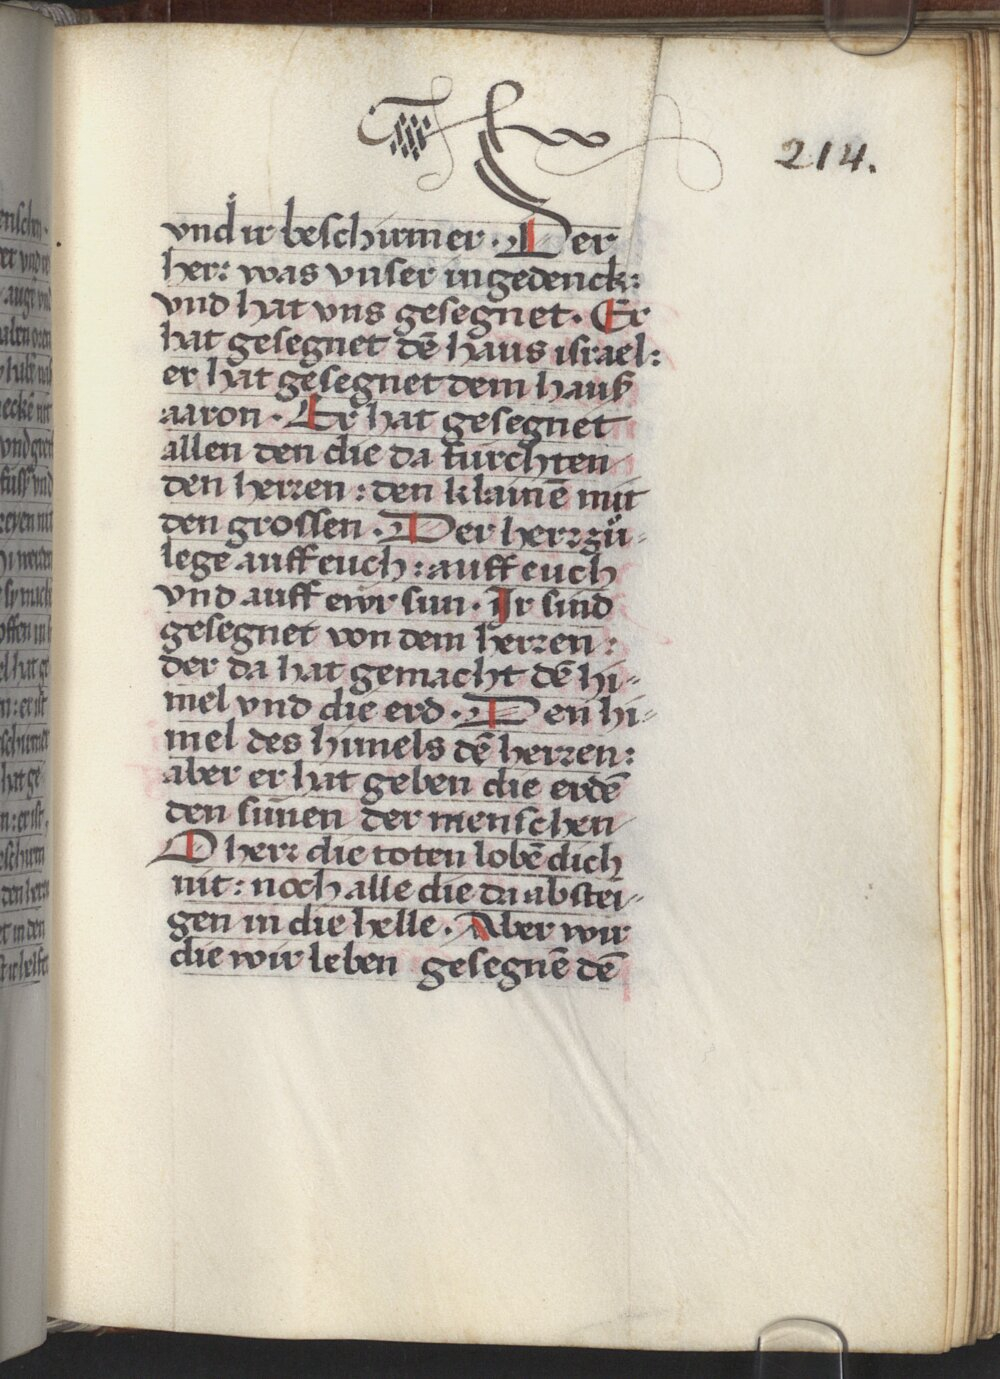 214.
vnd ir beschirmer. Der
herr was vnser ingedenck:
vnd hat vns gesegnet. Er
hat gesegnet dē haus israel:
er hat gesegnet dem hauß
aaron. Er hat gesegnet
allen den die da furchten
den herren: den klainē mit
den grossen. Der herr zů-
lege auff euch: auff euch
vnd auff ewr sun. Ir sind
gesegnet von dem herren:
der da hat gemacht dē hi-
mel vnd die erd. Den hi-
mel des himels dē herren:
aber er hat geben die erdē
den sūnen der menschen
O herr die toten lobē dich
nit: noch alle die da abstei-
gen in die helle. Aber wir
die wir leben gesegnē dē